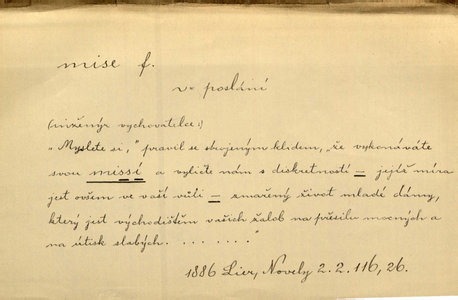 mise f.
v= poslání
(inženýr vychovatelce:)
„Myslete si," pravil se strojeným klidem, „že vykonáváte
svou missi a vylíčte nám s diskretností — jejíž míra
jest ovšem ve vaší vůli — zmařený život mladé dámy,
který jest východištěm vašich žalob na přesilu mocných a
na útisk slabých. . . . . . . ."
1886 Lier, Novely 2. 2. 116, 26.